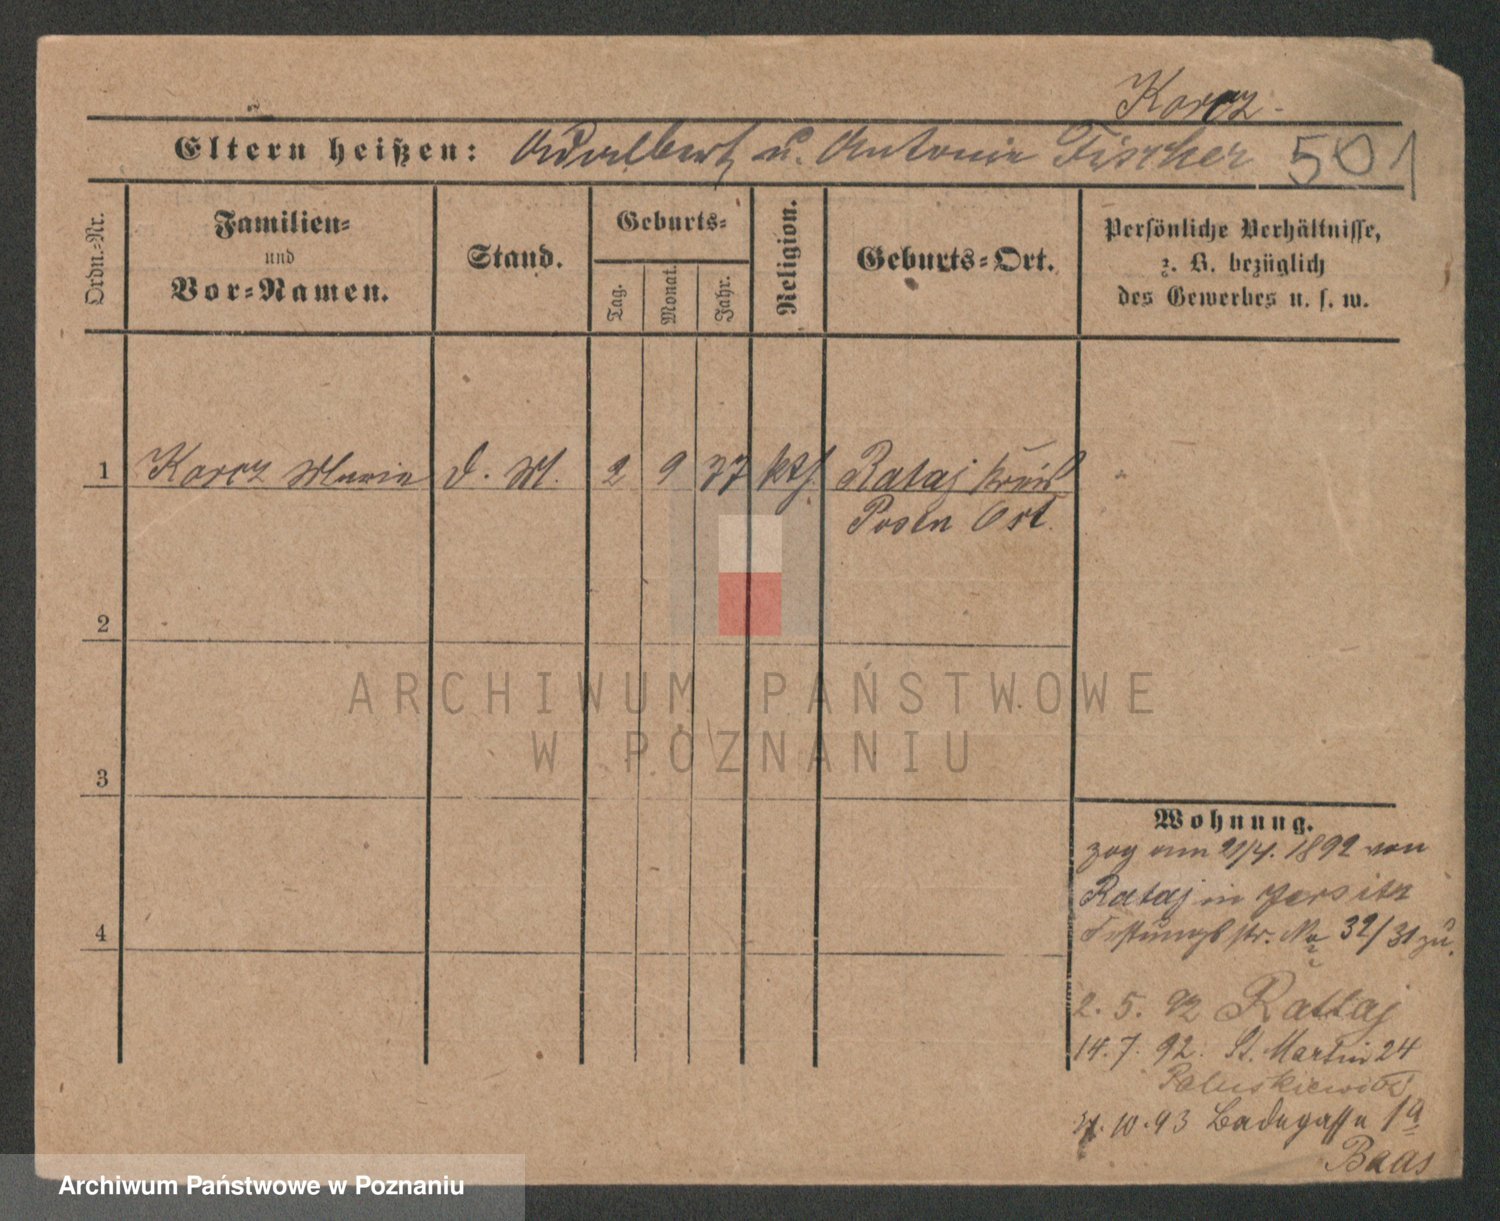 Korcz
Eltern heißen: Adalbert u. Antonie Fischer 501
Ordn.-Nr.
Familien-
und
Vor-Namen.
Stand.
Geburts-
Tag.
Monat.
Jahr.
Religion.
Geburts-Ort.
Persönliche Verhältnisse,
z. B. bezüglich
des Gewerbes u. s. w.
1 Korcz Marie d. M. 2 9 77 kth. Rataj Kreis
Posen Ost.
2
3
4
Wohnung.
zog am 21/4. 1892 von
Rataj in Jersitz
Festungsstr. No 32/31 zu.
2. 5. 92 Rattaj
14. 7. 92. St. Martin 24
Paluskiewicz
10. 93 Badegasse 1a
Baas
ARCHIWUM PAŃSTWOWE
W POZNANIU
Archiwum Państwowe w Poznaniu